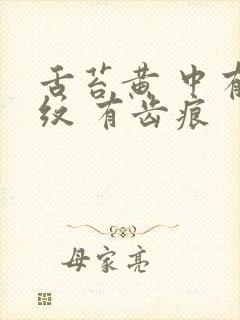 舌苔黄 中有
纹 有齿痕
母家亮